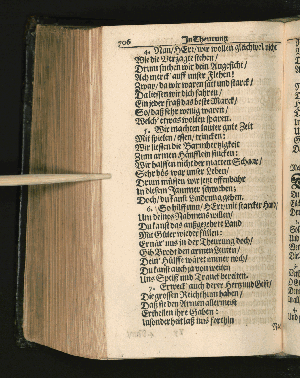 706 In Theurung
4. Nun / HErr / wir wollen gleichwol nicht
Wie die Verzagte stehen /
Drum suchen wir dein Angesicht /
Ach merck auff unser Flehen!
Zwar / da wir waren satt und starck /
Da liessen wir dich fahren /
Ein jeder fraß das beste Marck /
So / daß sehr wenig waren /
Welch' etwas wolten sparen.
5. Wir machten lauter gute Zeit
Mit spielen / essen / trincken:
Wir liessen die Barmhertzigkeit
Zum armen Häufflein sincken:
Wir halffen nicht der matten Schaar /
Sehr bös war unser Leben /
Drum müssen wir jetz offenbahr
In diesem Jammer schweben;
Doch / du kanst Linderung geben.
6. So hilff nun / HErr / mit starcker Hand /
Um deines Nahmens willen /
Du kanst das außgezehrte Land
Mit Güter wieder füllen:
Ernär' uns in der Theurung doch /
Gib Brodt den armen Leuten /
Dein' Hülffe waret immer noch /
Du kanst auch ja von weiten
Uns Speiß und Tranck bereiten.
7. Erweck' auch derer Hertz und Geist /
Die grossen Reichthum haben /
Daß sie den Armen allermeist
Ertheilen ihre Gaben:
Insonderheit laß uns forthin